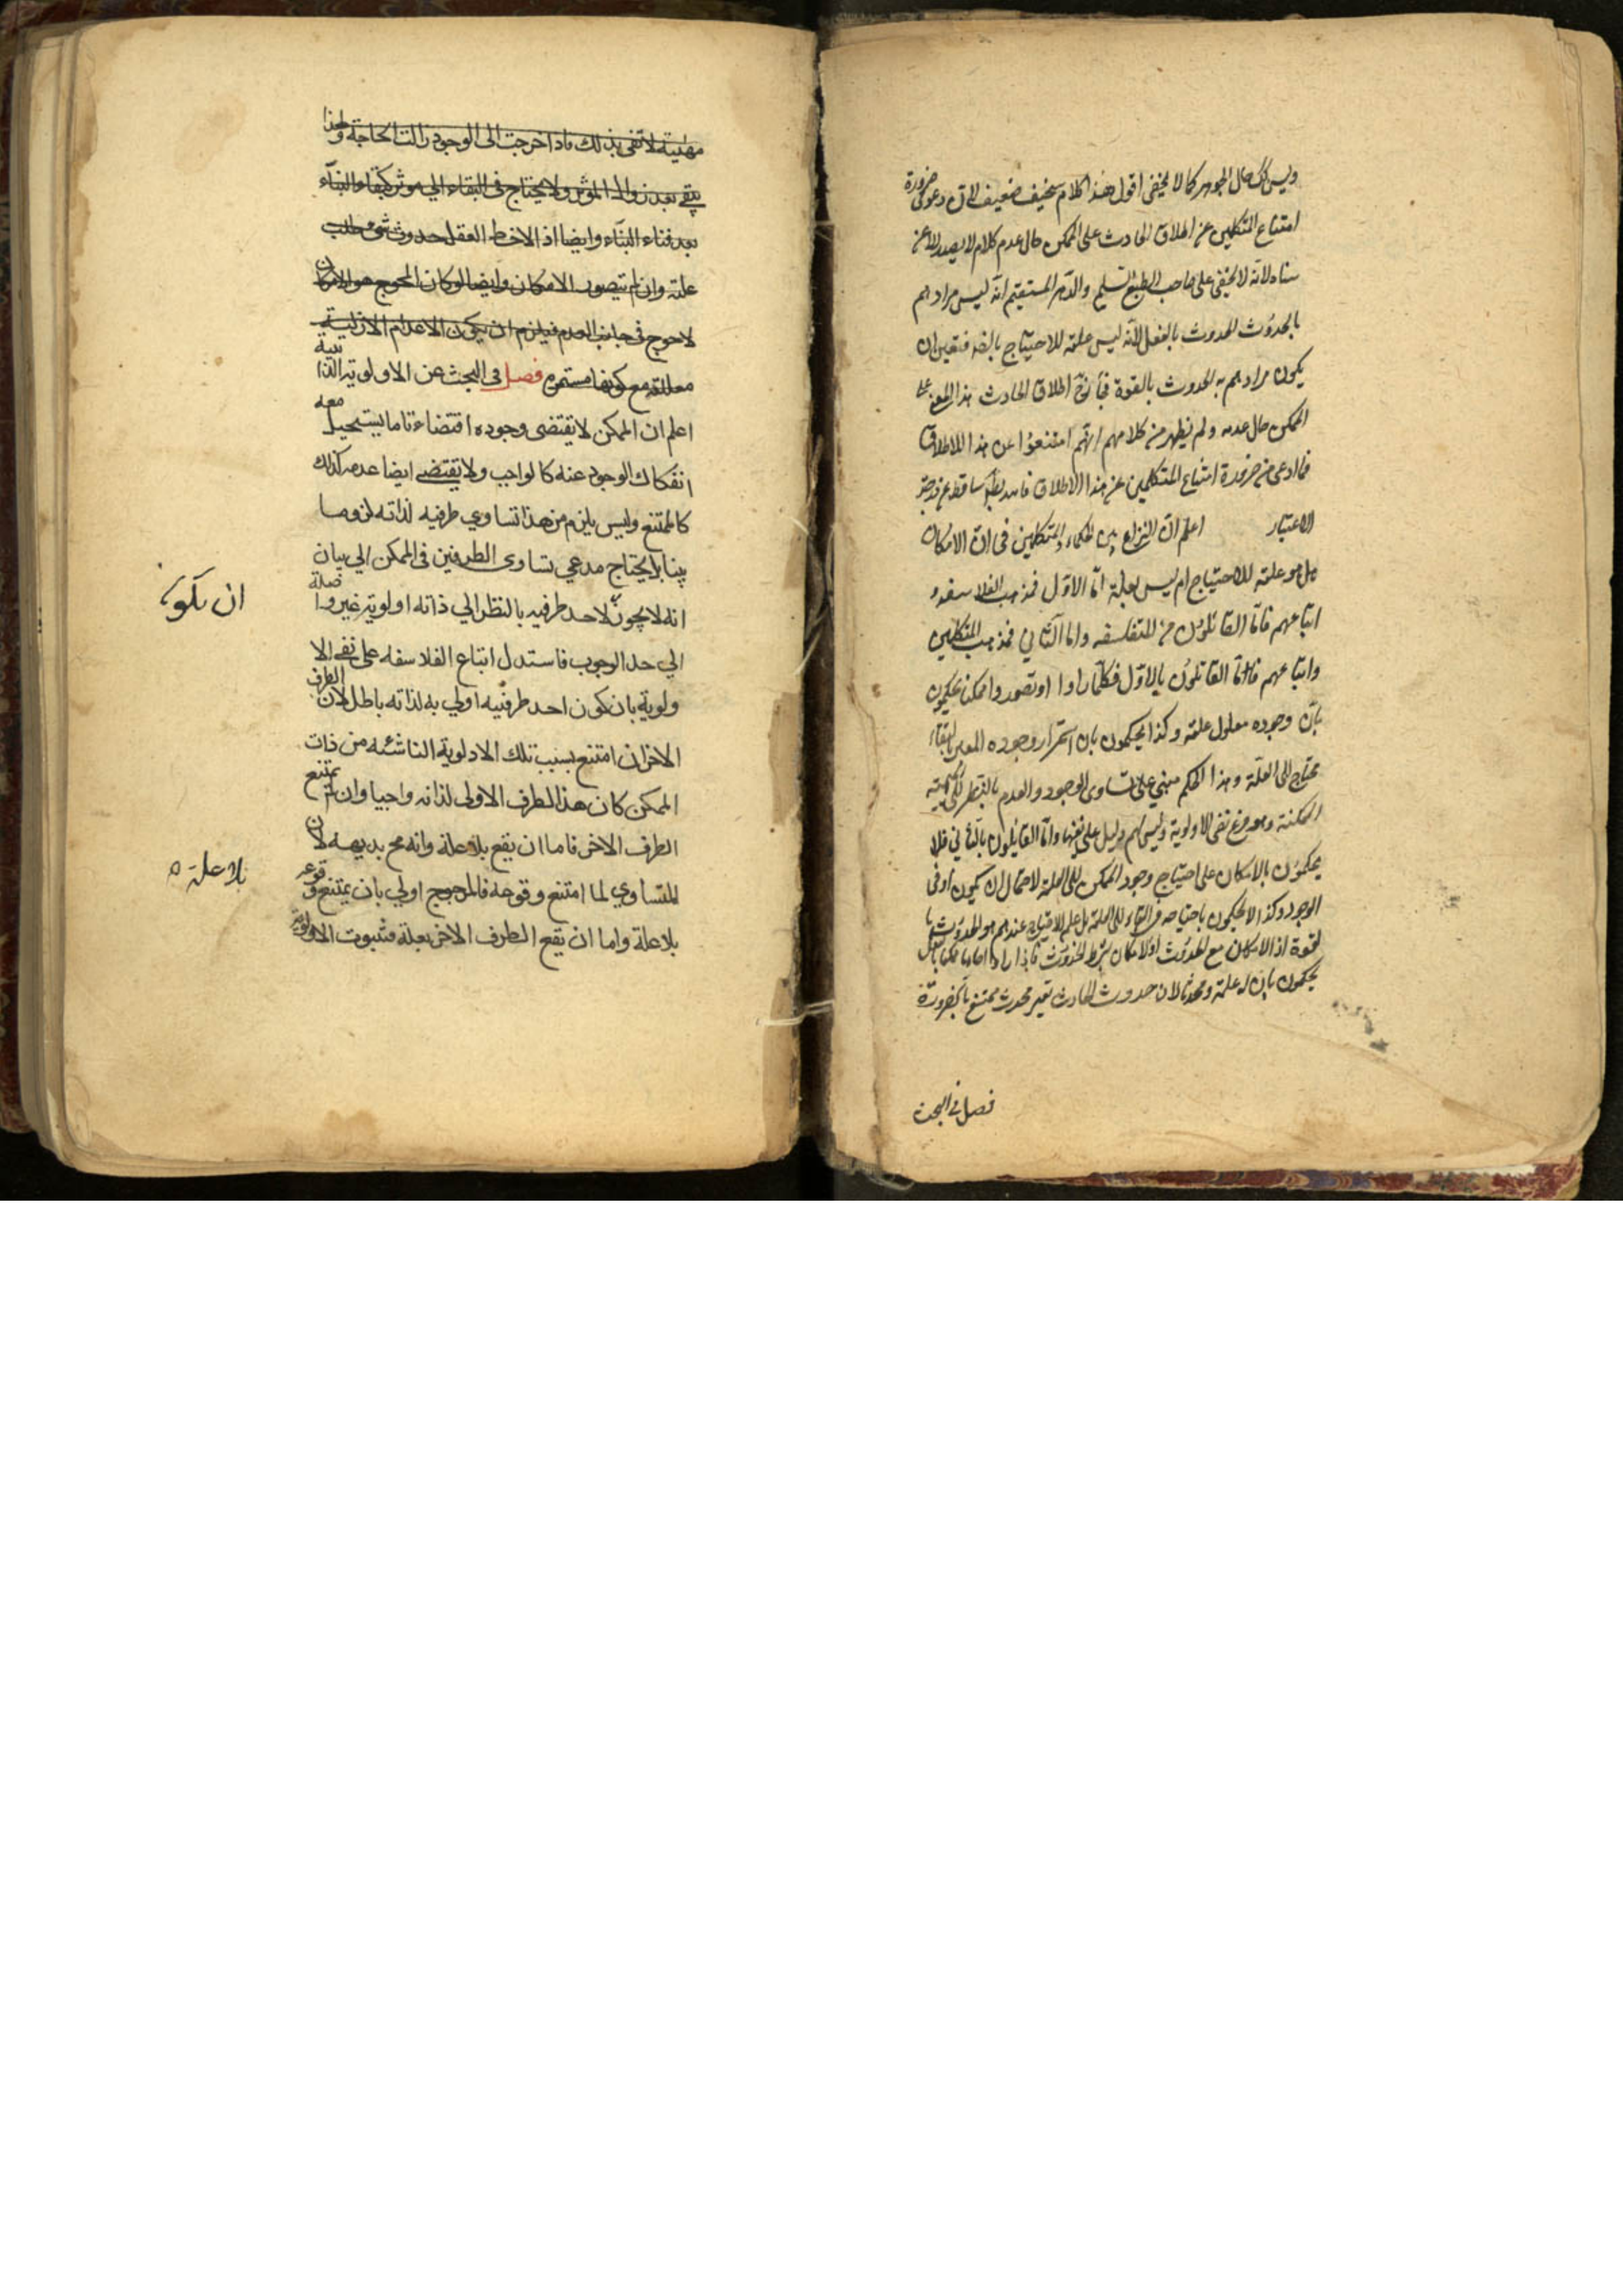 وليس كك حال الجوهر كما لا يخفى اقول هذا كلام سخيف ضعيف لان دعوى ضرورة
امتناع المتكلمين عن اطلاق الحادث على الممكن حال عدمه كلام لا يصدر الا عن
لانه لا يخفى على صاحب الطبع السليم والذهن المستقيم انه ليس مرادهم
بالحدوث الحدوث بالفعل لانه ليس علته للاحتياج بالضرورة فتعين ان
يكون مرادهم به الحدوث بالقوة اطلاق الحادث بهذا المعنى على
الممكن حال عدمه ولم يظهر من كلامهم انهم امتنعوا عن هذا الاطلاق
فما ادعى من ضرورة امتناع المتكلمين عن هذا الاطلاق فاسد ساقط عن درجة
الاعتبار اعلم ان النزاع بين الحكماء والمتكلمين في ان الامكان
هل هو علته للاحتياج ام ليس بعلة اما الاول فمذهب الفلاسفة و
اتباعهم من المتفلسفه واما الثاني فمذهب المتكلمين
واتباعهم القائلون بالاول فكلما راوا او تصوروا ممكنا يحكمون
بان وجوده معلول علته وكذا يحكمون بان استمرار وجوده المعبر بالبقاء
محتاج الى العلة وهذا الحكم مبني على تساوى الوجود والعدم بالنظر الى الماهية
الممكنة وهو فرع نفى الاولوية وليس لهم دليل على نفيها واما القائلون بالثاني فلا
يحكمون بالامكان على احتياج وجود الممكن الى العلة لاحتمال ان يكون اوفى
الوجود وكذا لا يحكمون باحتياجه في البقاء الى العلة بل علة الاحتياج عندهم هو الحدوث با
لقوة او الامكان مع الحدوث او الامكان بشرط الحدوث فاذا راوا
يحكمون بان له علته ومحدثا لان حدوث الحادث بغير محدث ممتنع بالضرورة
فصل في البحث
مهيته لا تفى بذلك فاذا خرجت الى الوجود زالت الحاجة ولهذا
يبقى بعد زوال المؤثر ولا يحتاج في البقاء الى موثر كبقاء البناء
بعد فناء البناء وايضا اذ الاحظ العقل حدوث شئ طلب
علته وان لم يتصور الامكان وايضا لو كان المحوج هو الامكان
لاحوج في جانب العدم فيلزم ان يكون الاعدام الازلية
معللة مع كونها مستمره فصل في البحث عن الاولوية الذاتيه
اعلم ان الممكن لا يقتضى وجوده اقتضاء تاما يستحيل معه
انفكاك الوجود عنه كالواجب ولا يقتضى ايضا عدمه كذلك
كالممتنع وليس يلزم من هذا تساوي طرفيه لذاته لزوما
بينا بل يحتاج مدعي تساوى الطرفين في الممكن الي بيان
انه لا يجوز لاحد طرفيه بالنظر الي ذاته اولوية غير واصلة
ان يكون
الي حد الوجوب فاستدل اتباع الفلاسفه على نفى الا
ولوية بان كون احد طرفيه اولي به لذاته باطل لان الطرف
الاخر ان امتنع بسبب تلك الاولوية الناشئه من ذات
الممكن كان هذا الطرف الاولى لذاته واجبا وان لم يمتنع
الطرف الاخر فاما ان يقع بلا علة وانه مح بديهة لان
بلا علته
المتساوي لما امتنع وقوعه فالمرجوح اولي بان يمتنع وقوعه
بلا علة واما ان يقع الطرف الاخر بعلة فثبوت الاولوية